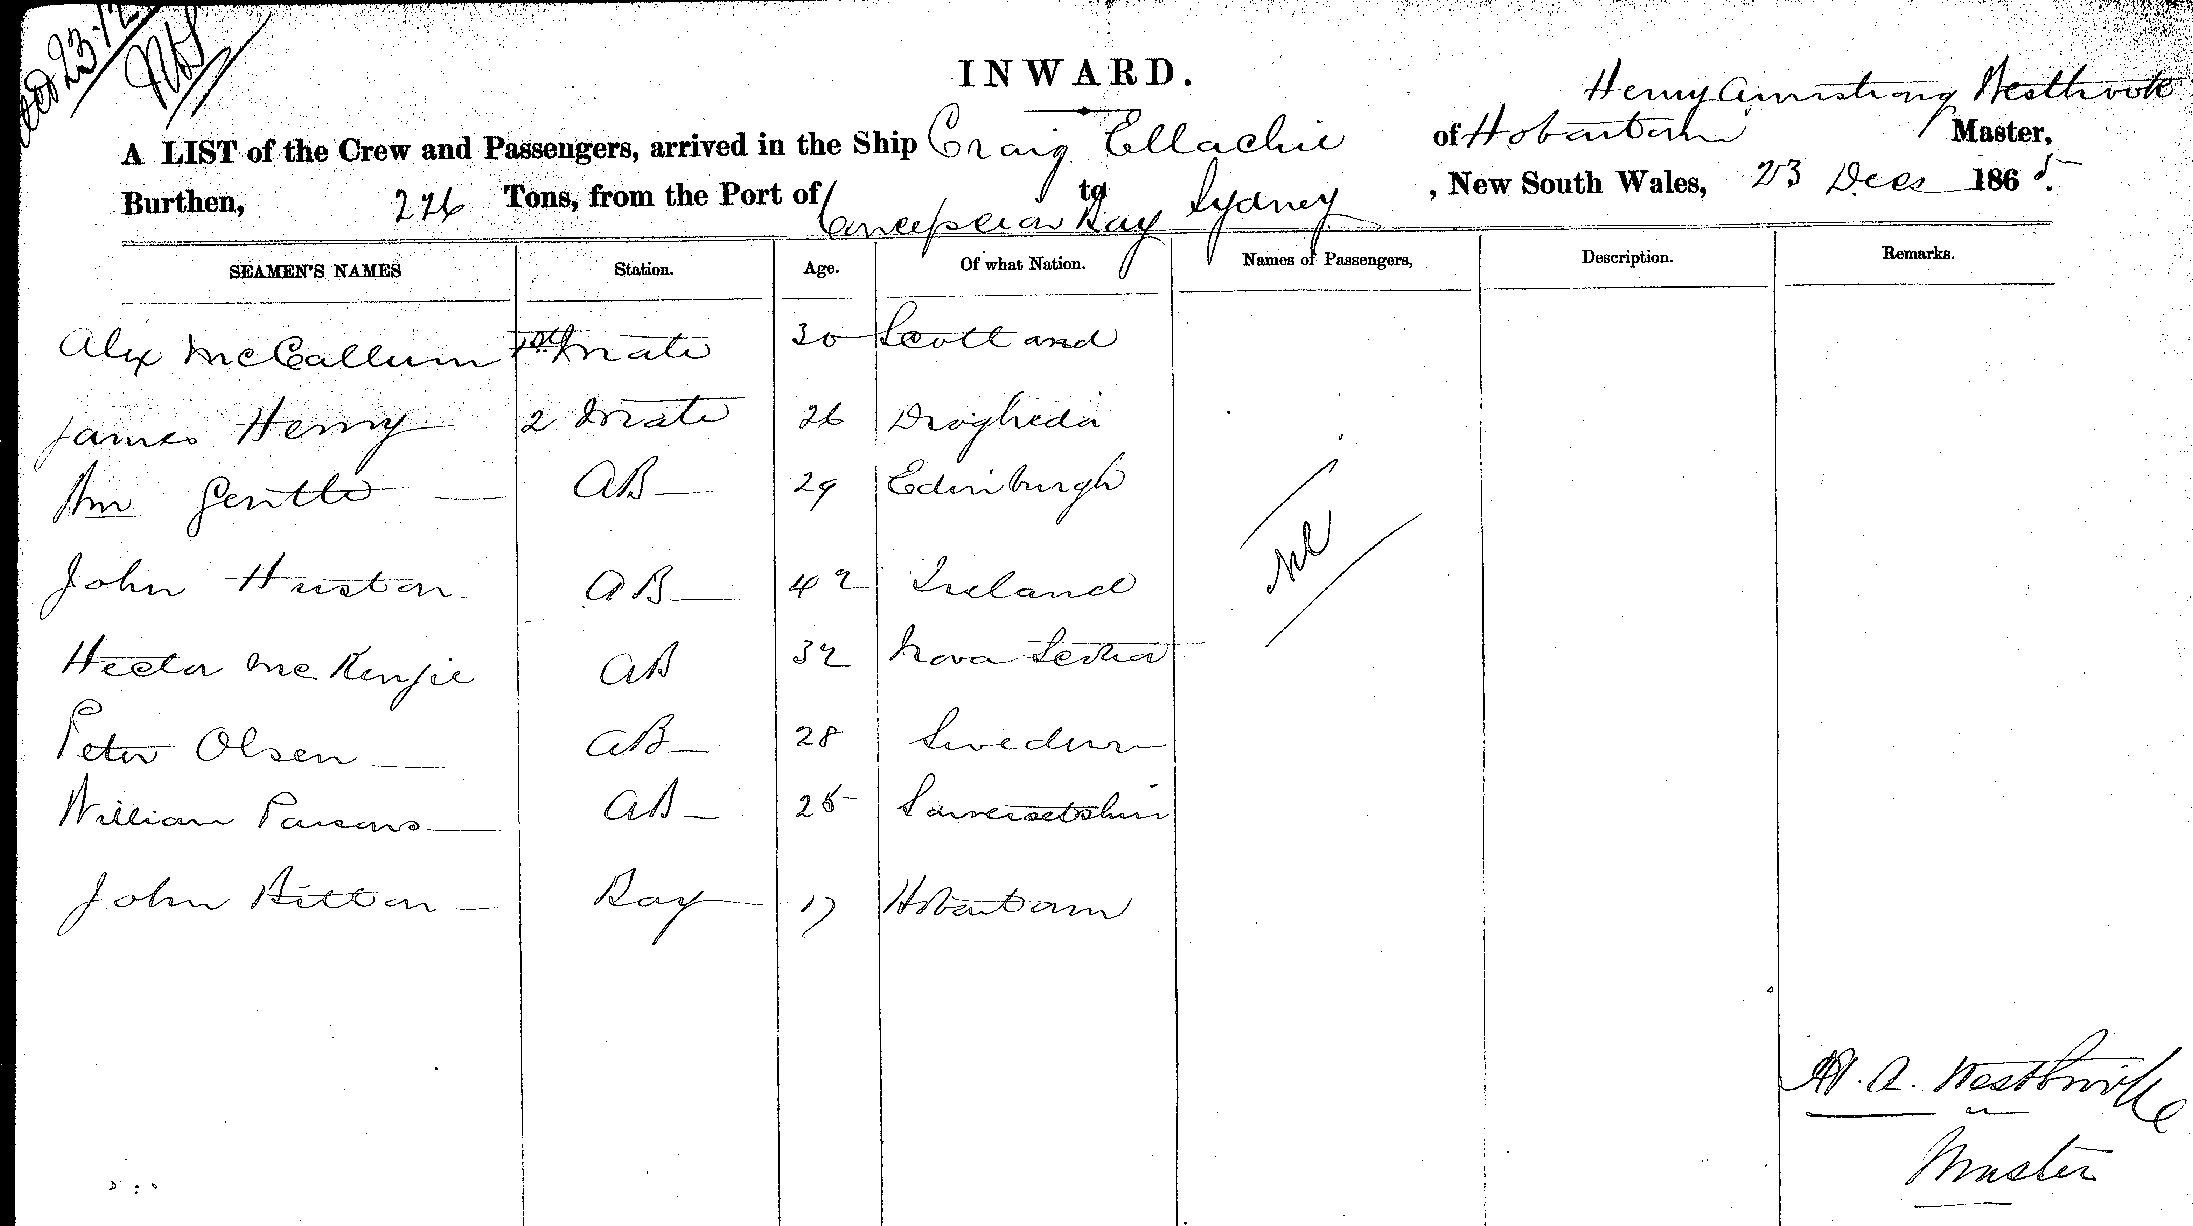 23.12
INWARD.
Henry Armstrong Westbrook
A LIST of the Crew and Passengers, arrived in the Ship Craig Ellachie of Hobartown Master,
Burthen, 226 Tons, from the Port of Concepcion Bay to Sydney, New South Wales, 23 Decr 1865.
SEAMEN'S NAMES Station. Age. Of what Nation. Names of Passengers, Description. Remarks.
Alex McCallum 1st Mate 30 Scotland
James Henry 2 Mate 26 Drogheda
Wm Gentle AB 29 Edinburgh
John Huston AB 42 Ireland
Nil
Hector McKenzie AB 32 Nova Scotia
Peter Olsen AB 28 Sweden
William Parsons AB 25 Somersetshire
John Bitton Boy 17 Hobartown
H. A. Westbrook
Master